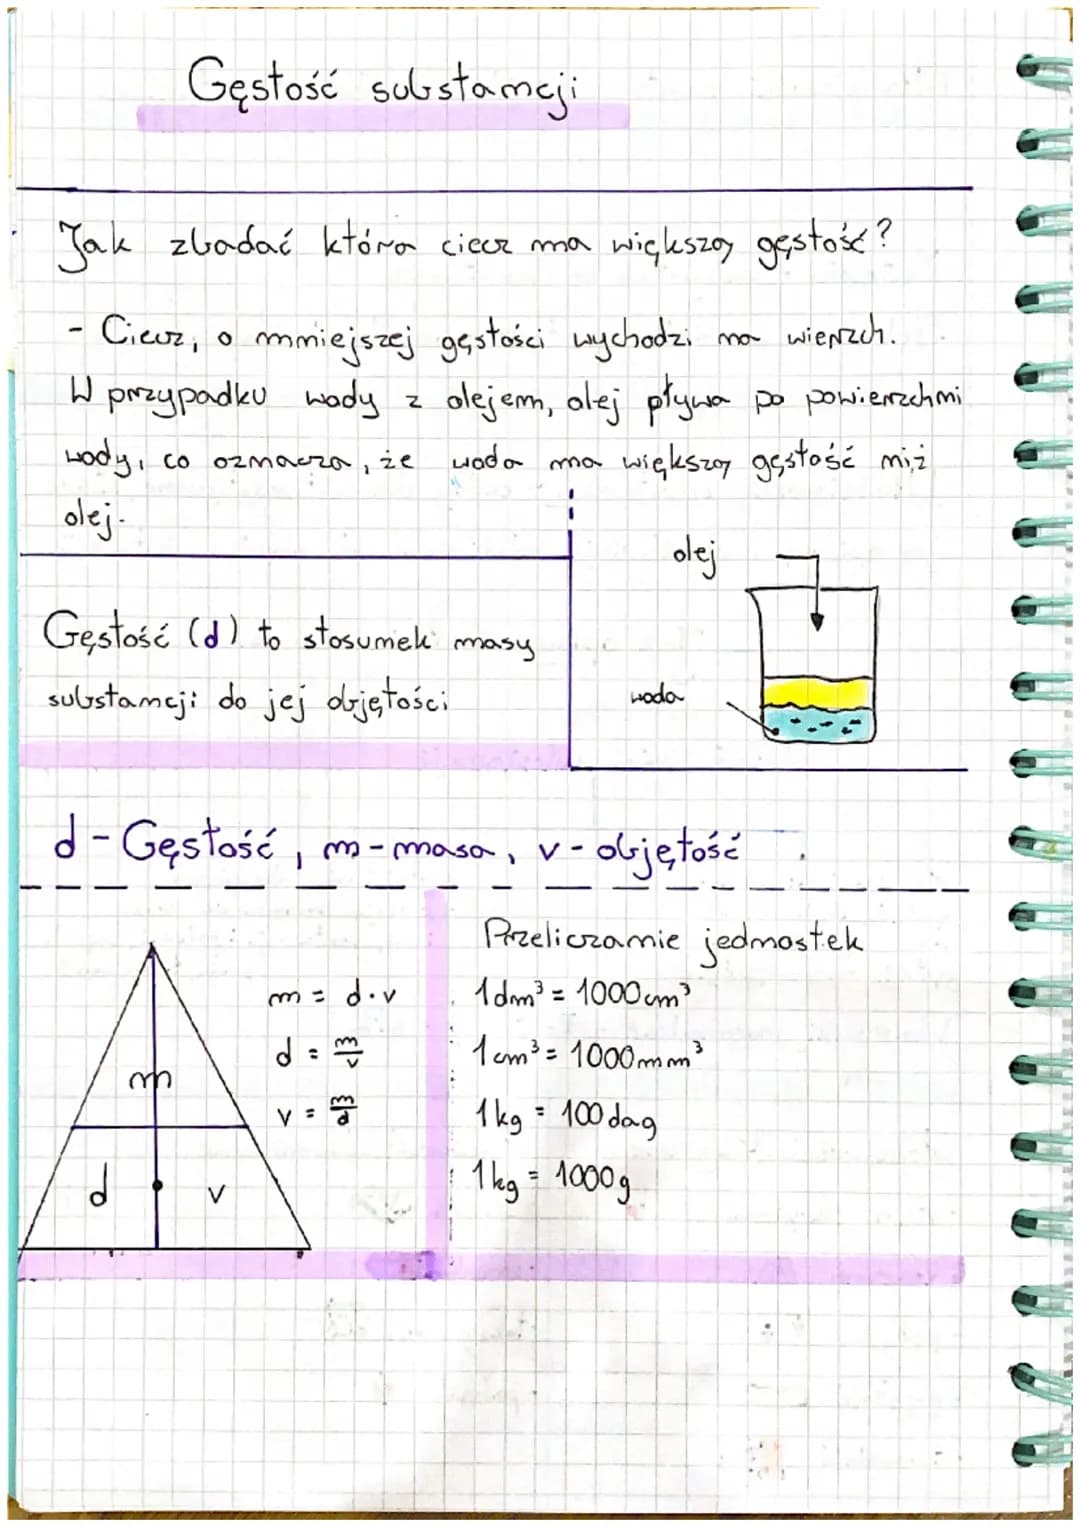 Gęstość substancji
Jak zbadać która ciecz ma większą gęstość?
- Ciecz, o mniejszej gęstości wychodzi na wierzch.
W przypadku wody z olejem, olej pływa po powierzchni
wody, co oznacza, że woda ma większą gęstość niż
olej.
olej
woda
Gęstość (d) to stosunek masy
substancji do jej objętości
d - Gęstość, m - masa, v - objętość
m
d
v
m = d · v
d = m/v
v = m/d
Przeliczanie jednostek
1 dm³ = 1000 cm³
1 cm³ = 1000 mm³
1 kg = 100 dag
1 kg = 1000 g